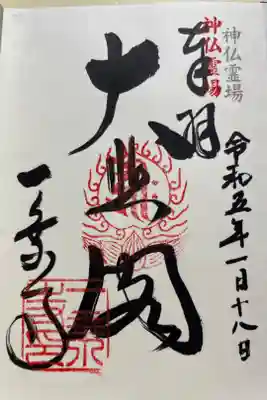 神仏霊場
神仏霊場
奉拝
令和五年一月十八日
大悲閣
一乗寺